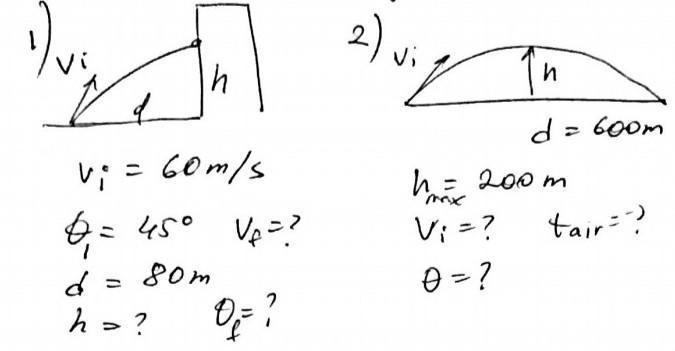 1)
Vi
d
h
Vi = 60 m/s
θi = 45° Vf = ?
d = 80 m
h = ? θf = ?
2)
Vi
h
d = 600m
hmax = 200 m
Vi = ? tair = ?
θ = ?